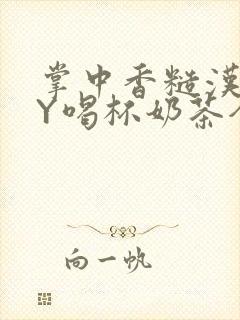 掌中香糙漢
Y喝杯奶茶
向一帆